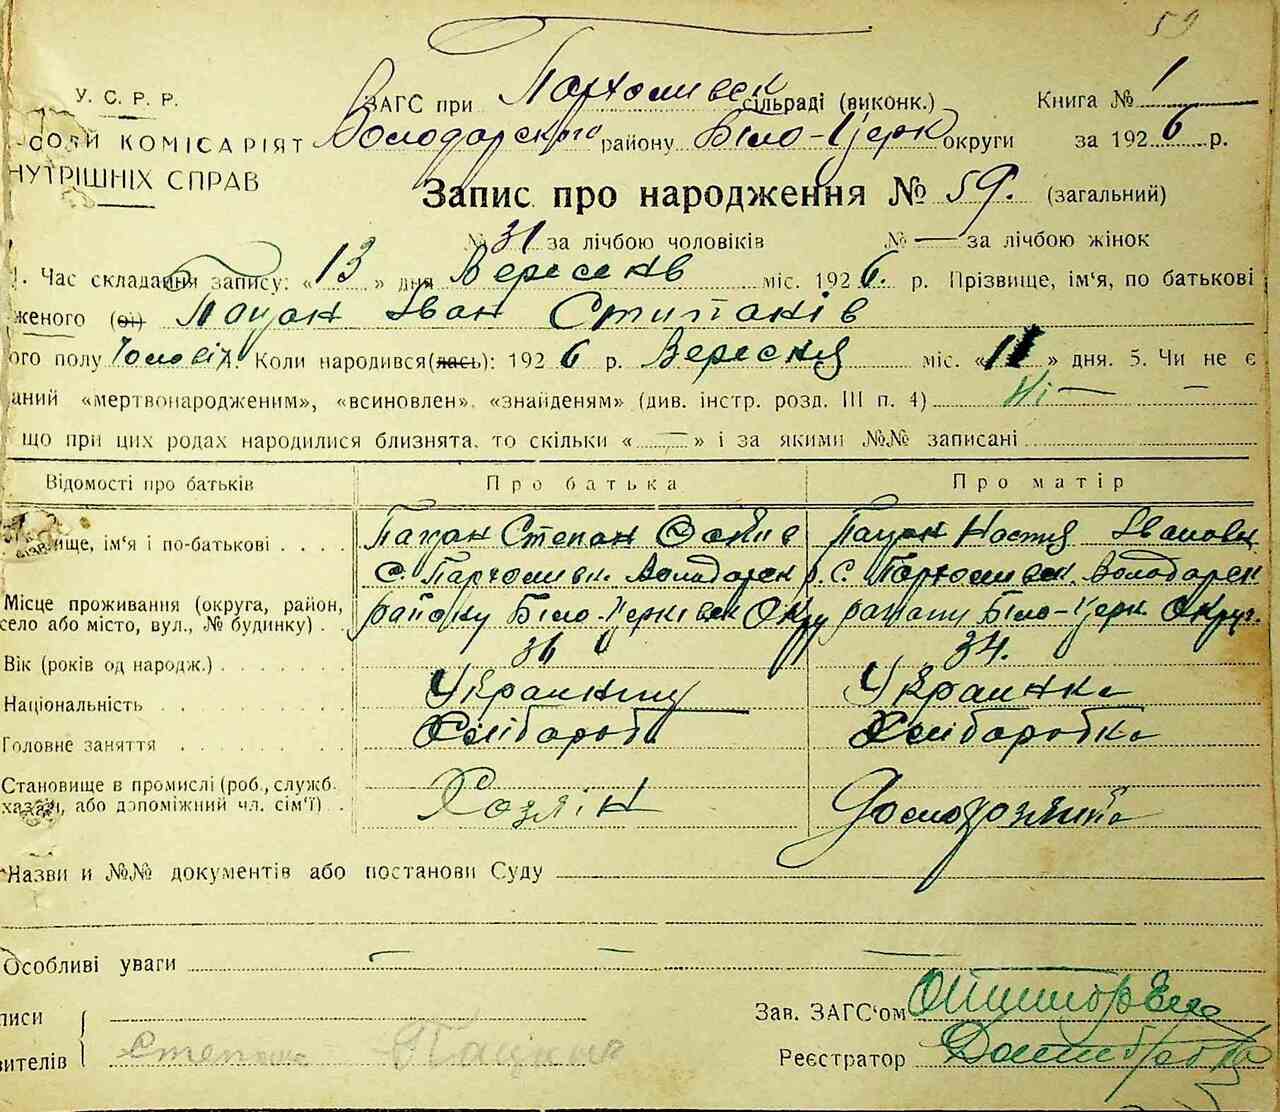 59
У. С. Р. Р. ЗАГС при Пархомивск сільраді (виконк.) Книга № 1
КОМІСАРІЯТ Володарского району Біло-Церк округи за 1926 р.
НУТРІШНІХ СПРАВ Запис про народження № 59. (загальний)
№ 31 за лічбою чоловіків № — за лічбою жінок
1. Час складання запису: «13» дня Вересня міс. 1926. р. Прізвище, ім'я, по батькові
женого (ої) Пацан Іван Стипанів
ого полу Чоловіч. Коли народився(лась): 1926 р. Вересня міс. «11» дня. 5. Чи не є
аний «мертвонародженим», «всиновлен», «знайденям» (див. інстр. розд. III п. 4) Ні —
що при цих родах народилися близнята, то скільки « — » і за якими №№ записані
Відомості про батьків Про батька Про матір
ище, ім'я і по-батькові . . . . Пацан Степан Пацан Настя Івановн
Місце проживання (округа, район, с. Пархомивк. Володарск р. с. Пархомивск. Володарск
село або місто, вул., № будинку) . району Біло-Церківск Окру району Біло-Церк Округ.
Вік (років од народж.) . . . . . . . 36 34.
Національність . . . . . . . . Украинец Украинка
Головне заняття . . . . . . . Хлібороб Хліборобка
Становище в промислі (роб., служб. Хозяін Домохозяйка
хазяїн, або допоміжний чл. сім'ї) . .
Назви и №№ документів або постанови Суду
Особливі уваги — — —
писи { Зав. ЗАГС'ом
вителів Степан Пацан Реєстратор